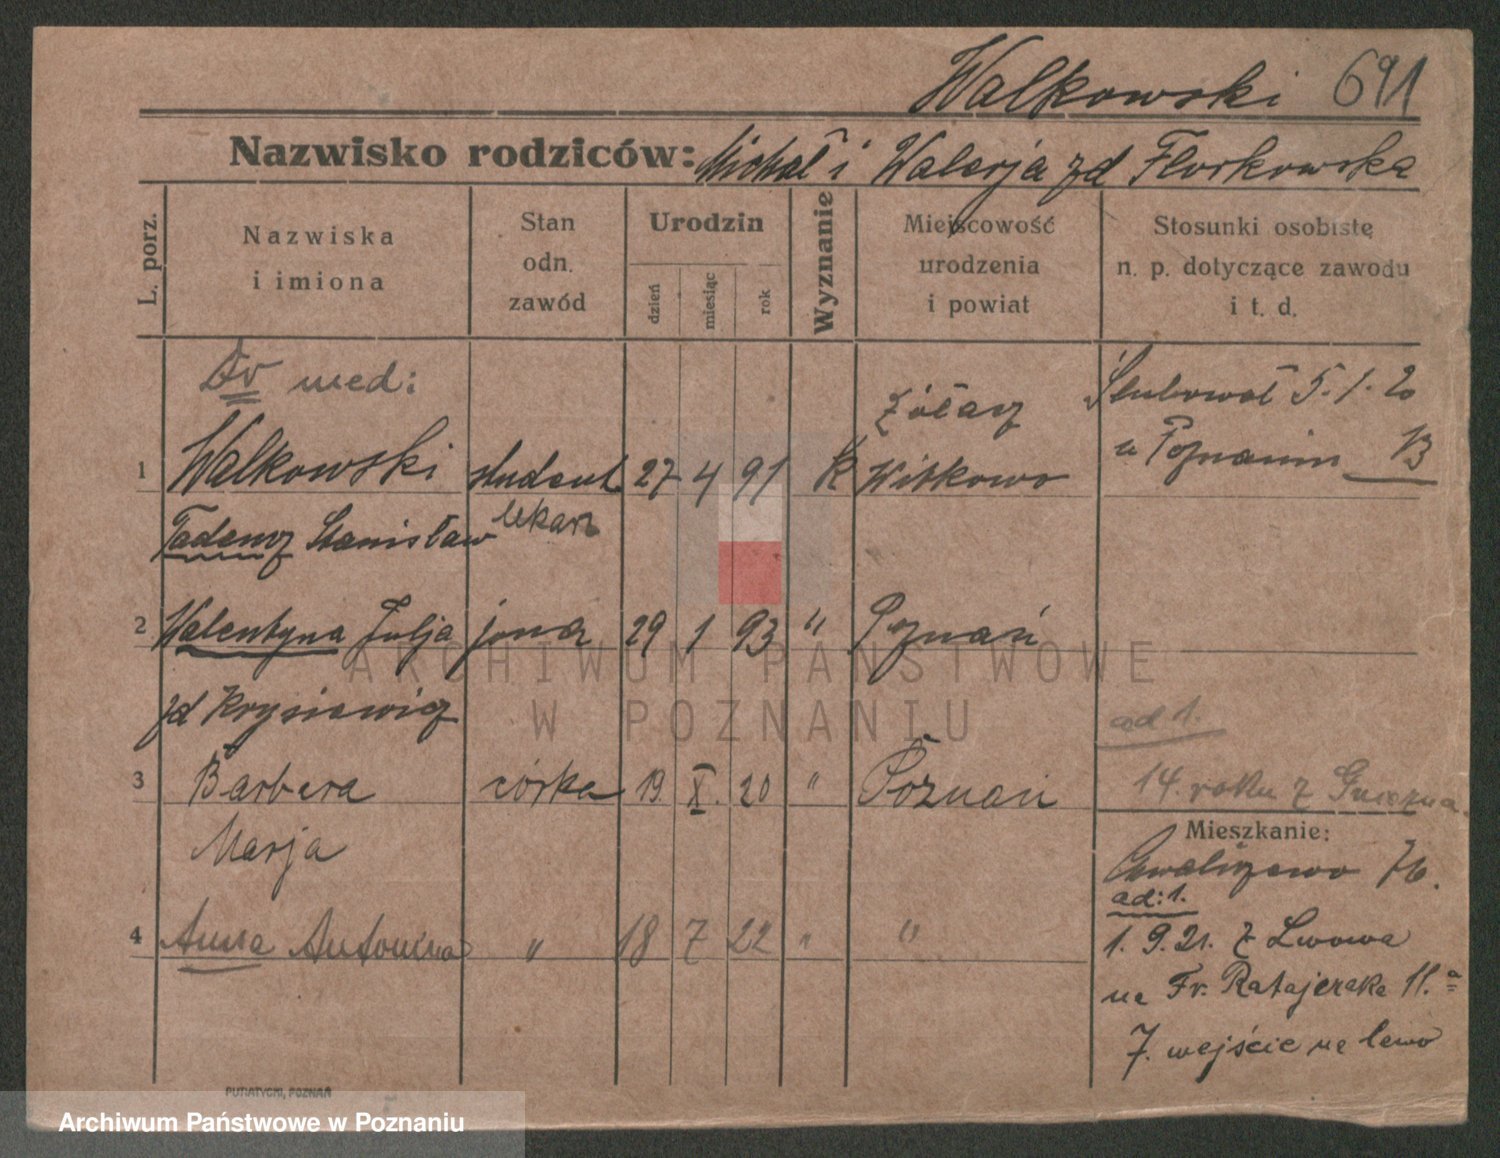 Walkowski 691
Nazwisko rodziców: Michał i Walerja zd Florkowska
L. porz.
Nazwiska
i imiona
Stan
odn.
zawód
Urodzin
dzień
miesiąc
rok
Wyznanie
Miejscowość
urodzenia
i powiat
Stosunki osobistę
n. p. dotyczące zawodu
i t. d.
Dr med:
1 Walkowski student 27 4 91 K Witkowo
Żółcz
Ślubował 5.1.20
w Poznaniu 13
Tadeusz Stanisław lekarz
2 Walentyna Julja żona 29 1 93 " Poznań
zd Krysiewicz
ad 1.
3 Barbara córka 19. X. 20 " Poznań
14. roku z Gniezna
Marja
Mieszkanie:
Chwaliszewo 76.
ad: 1.
4 Anna Antonina " 18 7 22 " "
1. 9. 21. z Lwowa
na Fr. Ratajczaka 11.a
7. wejście na lewo
PUTIATYCKI, POZNAŃ
ARCHIWUM PAŃSTWOWE
W POZNANIU
Archiwum Państwowe w Poznaniu